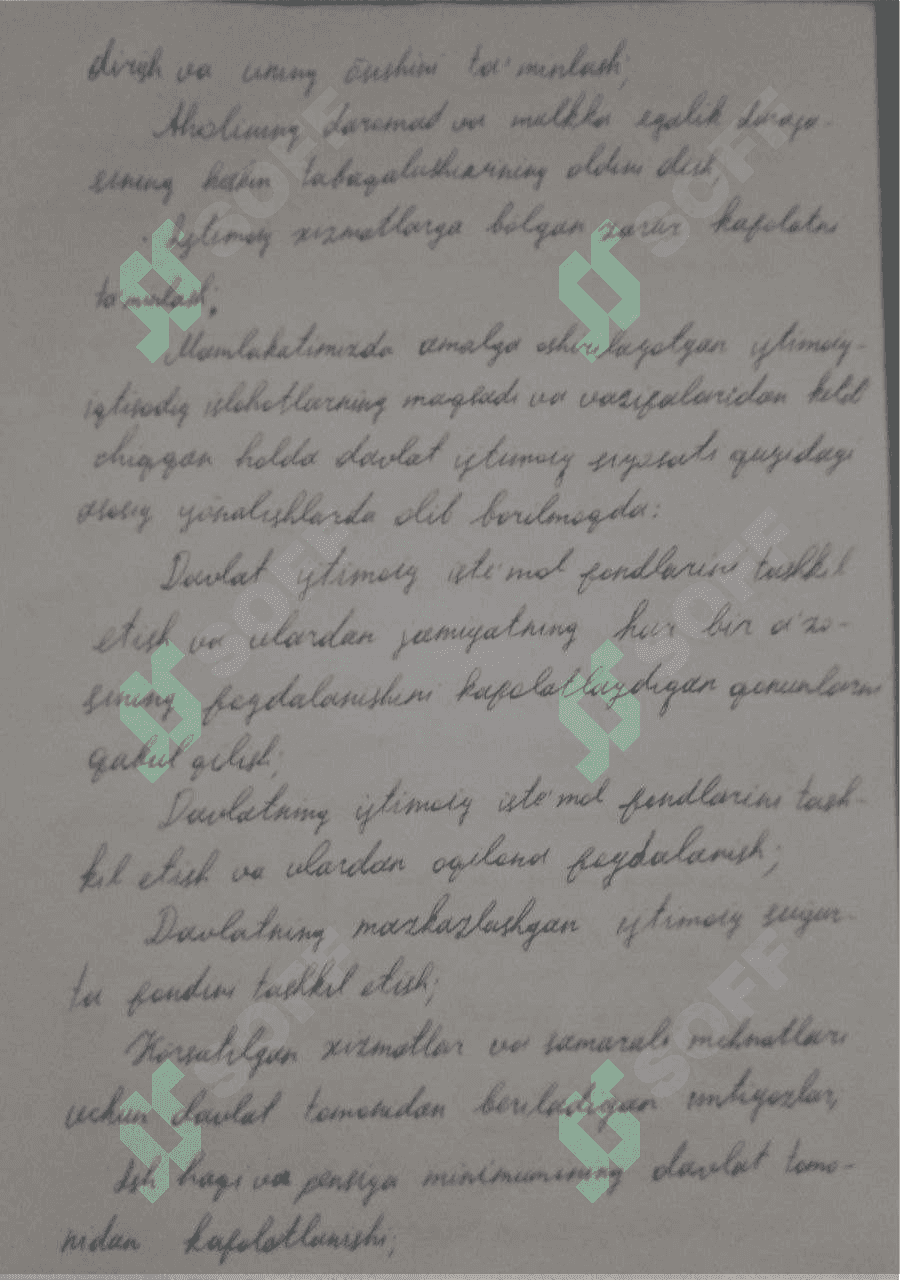 dirish va uning ōsishini ta'minlash;
Aholining daromad va mulkka egalik daraja-
sining keskin tabaqalashuvining oldini olish;
Ijtimoiy xizmatlarga bōlgan zarur kafolatni
ta'minlash;
Mamlakatimizda amalga oshirilayotgan ijtimoiy-
iqtisodiy islohotlarning maqsadi va vazifalaridan kelib
chiqqan holda davlat ijtimoiy siyosati quyidagi
asosiy yōnalishlarda olib borilmoqda:
Davlat ijtimoiy iste'mol fondlarini tashkil
etish va ulardan jamiyatning har bir a'zo-
sining foydalanishini kafolatlaydigan qonunlarni
qabul qilish;
Davlatning ijtimoiy iste'mol fondlarini tash-
kil etish va ulardan oqilona foydalanish;
Davlatning markazlashgan ijtimoiy sug'ur-
ta fondini tashkil etish;
Kōrsatilgan xizmatlar va samarali mehnatlari
uchun davlat tomonidan beriladigan imtiyozlar;
Ish haqi va pensiya minimumining davlat tomo-
nidan kafolatlanishi;
SOFF
SOFF
SOFF
SOFF
SOFF
SOFF